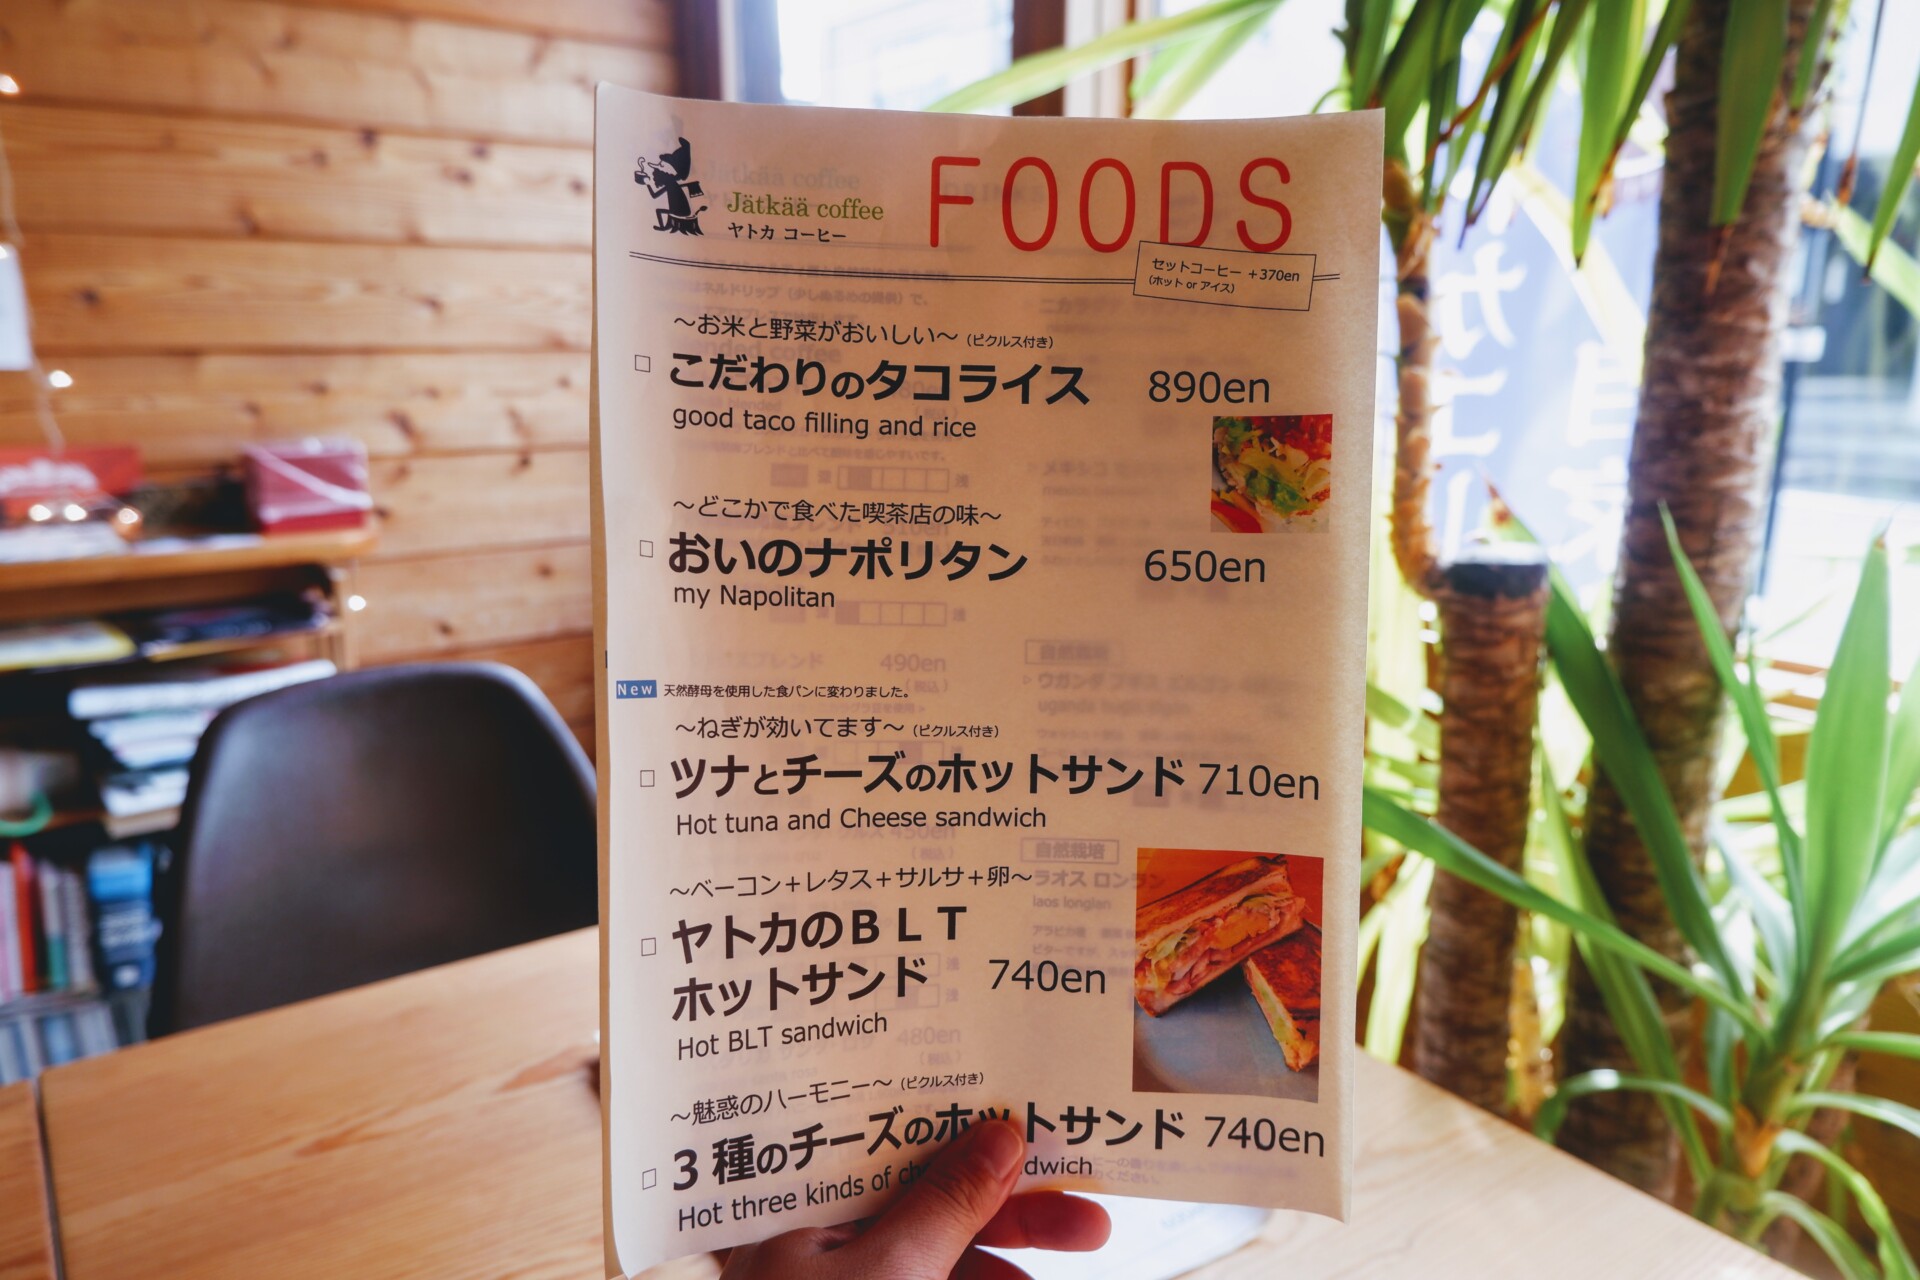 Jätkää coffee
ヤトカ コーヒー
FOODS
セットコーヒー +370en
(ホット or アイス)
～お米と野菜がおいしい～ (ピクルス付き)
□ こだわりのタコライス 890en
good taco filling and rice
～どこかで食べた喫茶店の味～
□ おいのナポリタン 650en
my Napolitan
New 天然酵母を使用した食パンに変わりました。
～ねぎが効いてます～ (ピクルス付き)
□ ツナとチーズのホットサンド 710en
Hot tuna and Cheese sandwich
～ベーコン＋レタス＋サルサ＋卵～
□ ヤトカのＢＬＴ
ホットサンド 740en
Hot BLT sandwich
～魅惑のハーモニー～ (ピクルス付き)
□ ３種のチーズのホットサンド 740en
Hot three kinds of
自然栽培
ラオス ロンラン
laos longlan
490en
480en